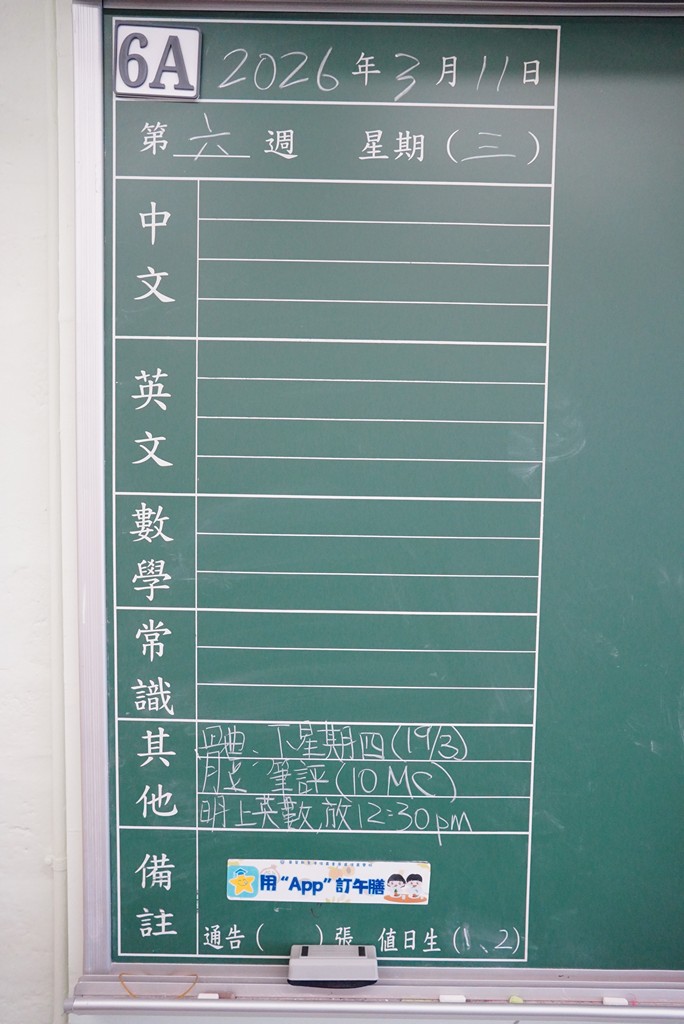 6A 2026年3月11日
第六週 星期(三)
中文
英文
數學
常識
其他
下星期四(19/3)
筆評(10 MC)
明上英數,放12:30pm
備註
用“App”訂午膳
通告( )張 值日生(1、2)